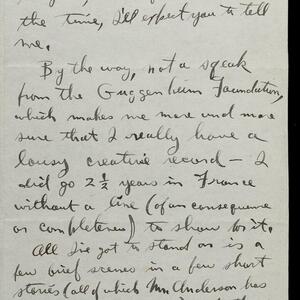 the time, I'll expect you to tell
me.
By the way, not a squeak
from the Guggenheim Foundation,
which makes me more and more
sure that I really have a
lousy creative record – I
did go 2 ½ years in France
without a line (of any consequence
or completeness) to show for it.
All I've got to stand on is a
few brief scenes in a few short
stories (all of which Mr. Anderson has